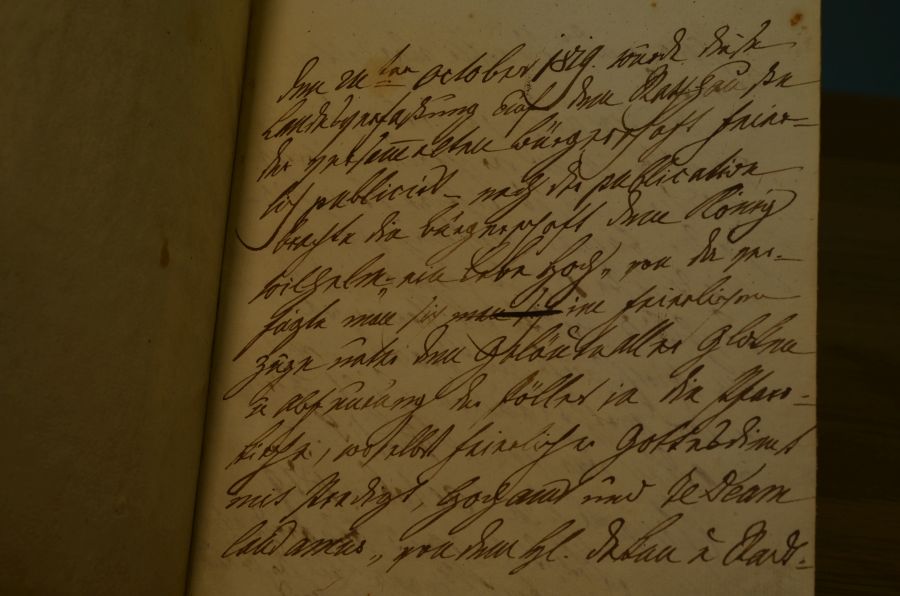 den 21ten october 1819. wurde diese
Landesverfassung auf dem Rathhause
der versam̅elten bürgerschaft feier=
lich publicirt – nach der publication
brachte die bürgerschaft dem König
Wilhelm ein Lebe Hoch, von da ver=
fügte man sich im feierlichen
Zuge unter dem Geläute aller Gloken
u abfeurung der Pöller in die Pfarr=
kirche, woselbst feierlicher Gottesdienst
mit Predigt, Hochamt und Te Deum
laudamus, von dem H. Dekan u Stadt=